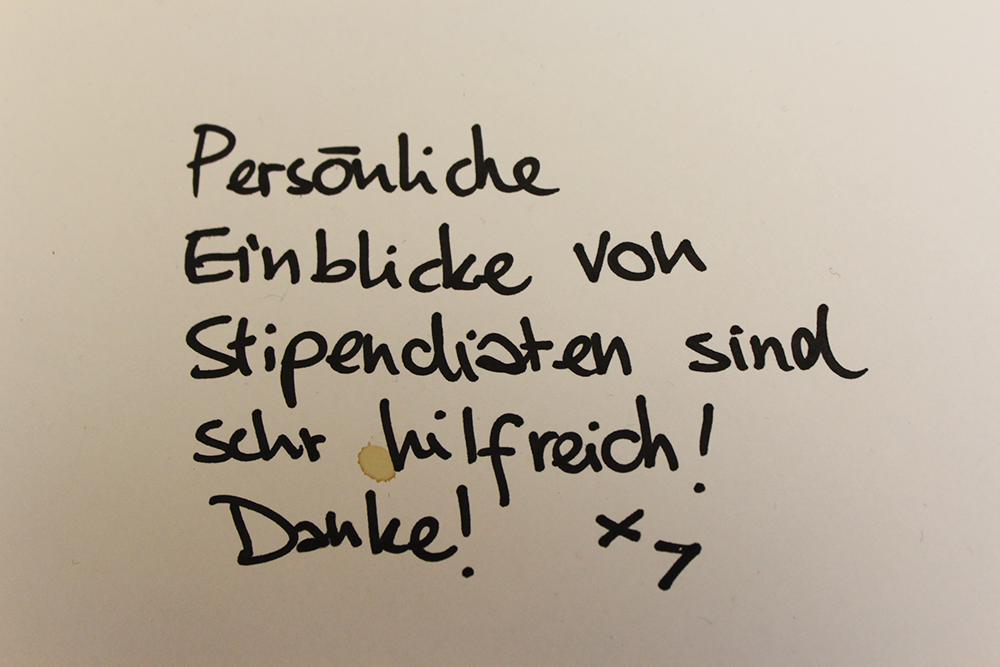 Persönliche
Einblicke von
Stipendiaten sind
sehr hilfreich!
Danke!